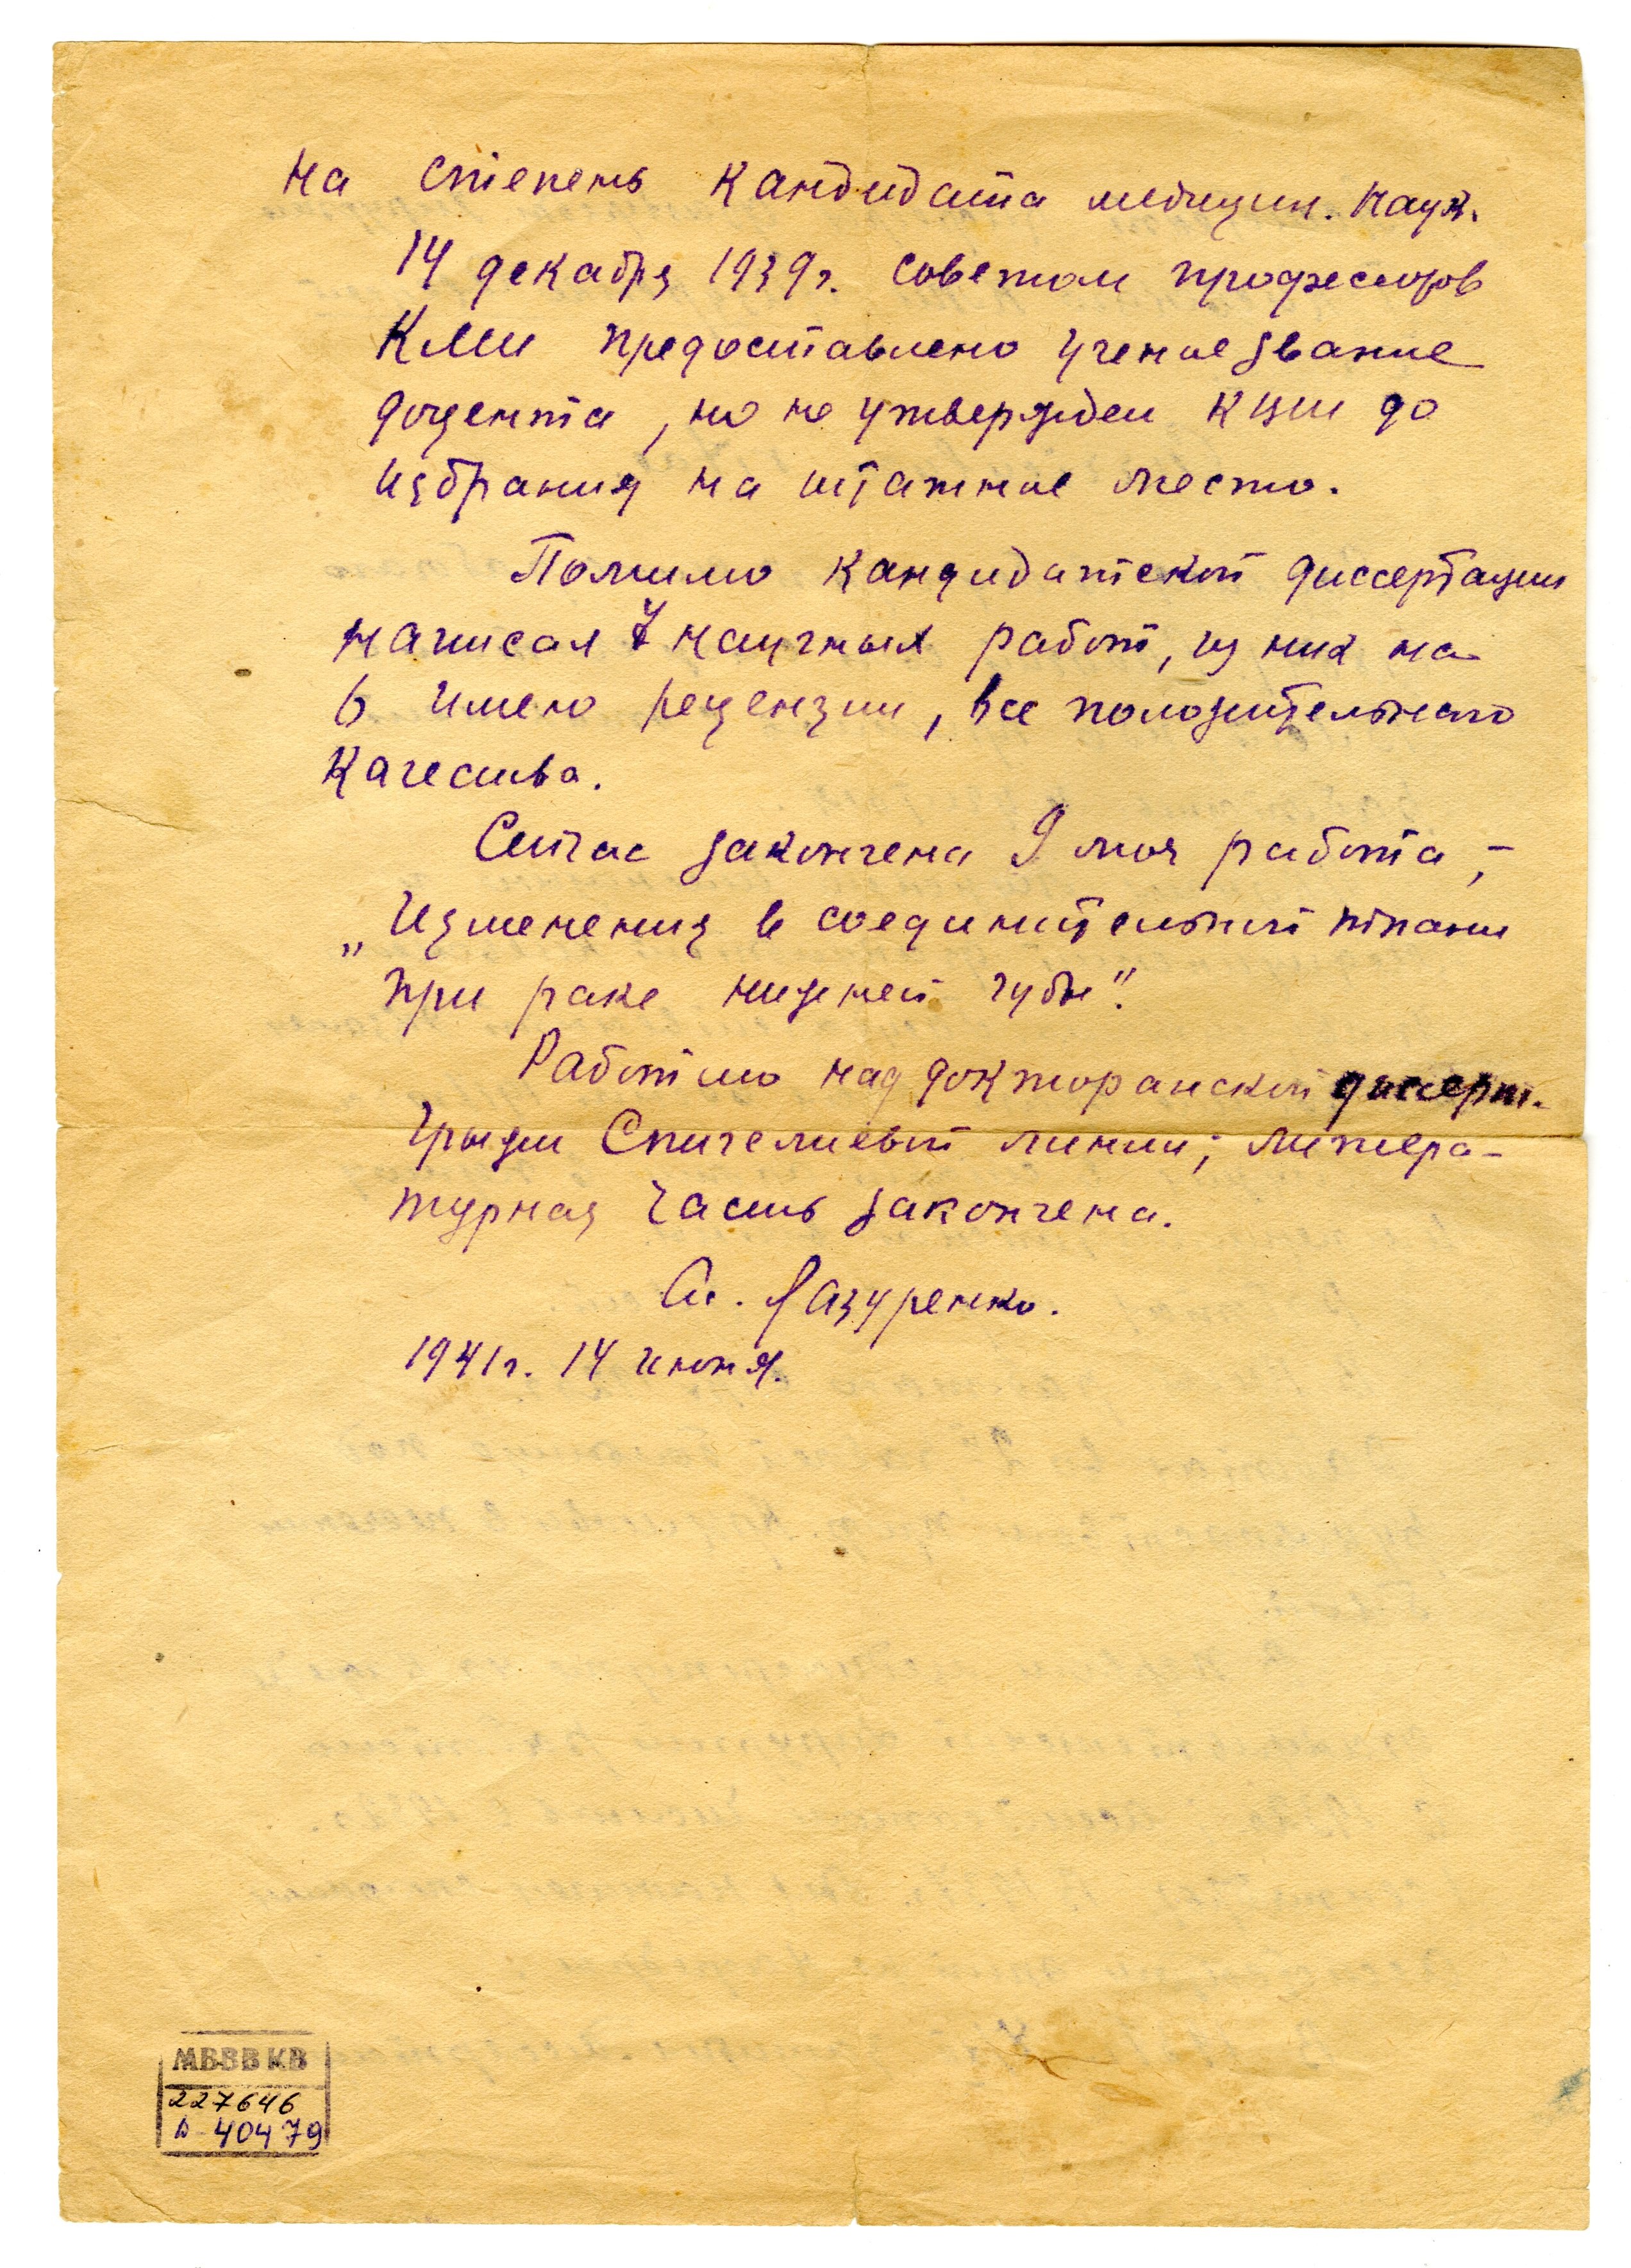 на степень кандидата медицин. наук.
14 декабря 1939г. советом профессоров
КМИ предоставлено ученое звание
доцента, но не утвержден до
избрания на штатное место.
Помимо кандидатской диссертации
написал 7 научных работ, из них на
6 имею рецензии, все положительного
качества.
Сейчас закончена 9 моя работа, –
„Изменения в соединительной ткани
при раке нижней губы".
Работаю над докторанской диссерт.
Грыжи Спигелиевой линии; литера-
турная часть закончена.
Лазуренко.
1941г. 14 июня.
МВВВКВ
227646
40479